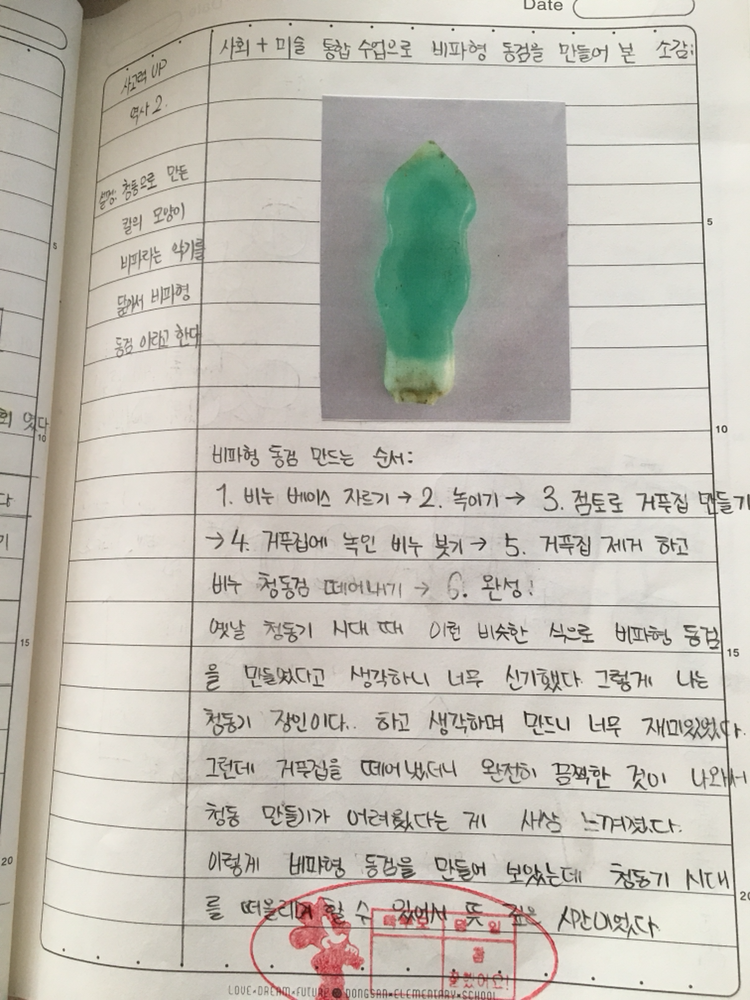 Date
사회 + 미술 통합 수업으로 비파형 동검을 만들어 본 소감;
사고력 UP
역사 2.
설명: 청동으로 만든
칼의 모양이
비파라는 악기를
닮아서 비파형
동검 이라고 한다
5
10
비파형 동검 만드는 순서:
1. 비누 베이스 자르기 → 2. 녹이기 → 3. 점토로 거푸집 만들기
→ 4. 거푸집에 녹인 비누 붓기 → 5. 거푸집 제거 하고
비누 청동검 떼어내기 → 6. 완성!
옛날 청동기 시대 때 이런 비슷한 식으로 비파형 동검
15
을 만들었다고 생각하니 너무 신기했다 그렇게 나는
청동기 장인이다.. 하고 생각하며 만드니 너무 재미있었다.
그런데 거푸집을 떼어냈더니 완전히 끔찍한 것이 나와서
청동 만들기가 어려웠다는 게 새삼 느껴졌다.
이렇게 비파형 동검을 만들어 보았는데 청동기 시대
20
를 떠올리게 할 수 있어서 뜻 깊은 시간이었다.
참
잘했어요!
LOVE•DREAM•FUTURE DONGSAN•ELEMENTARY•SCHOOL
5
회 였다
10
다
기
15
20